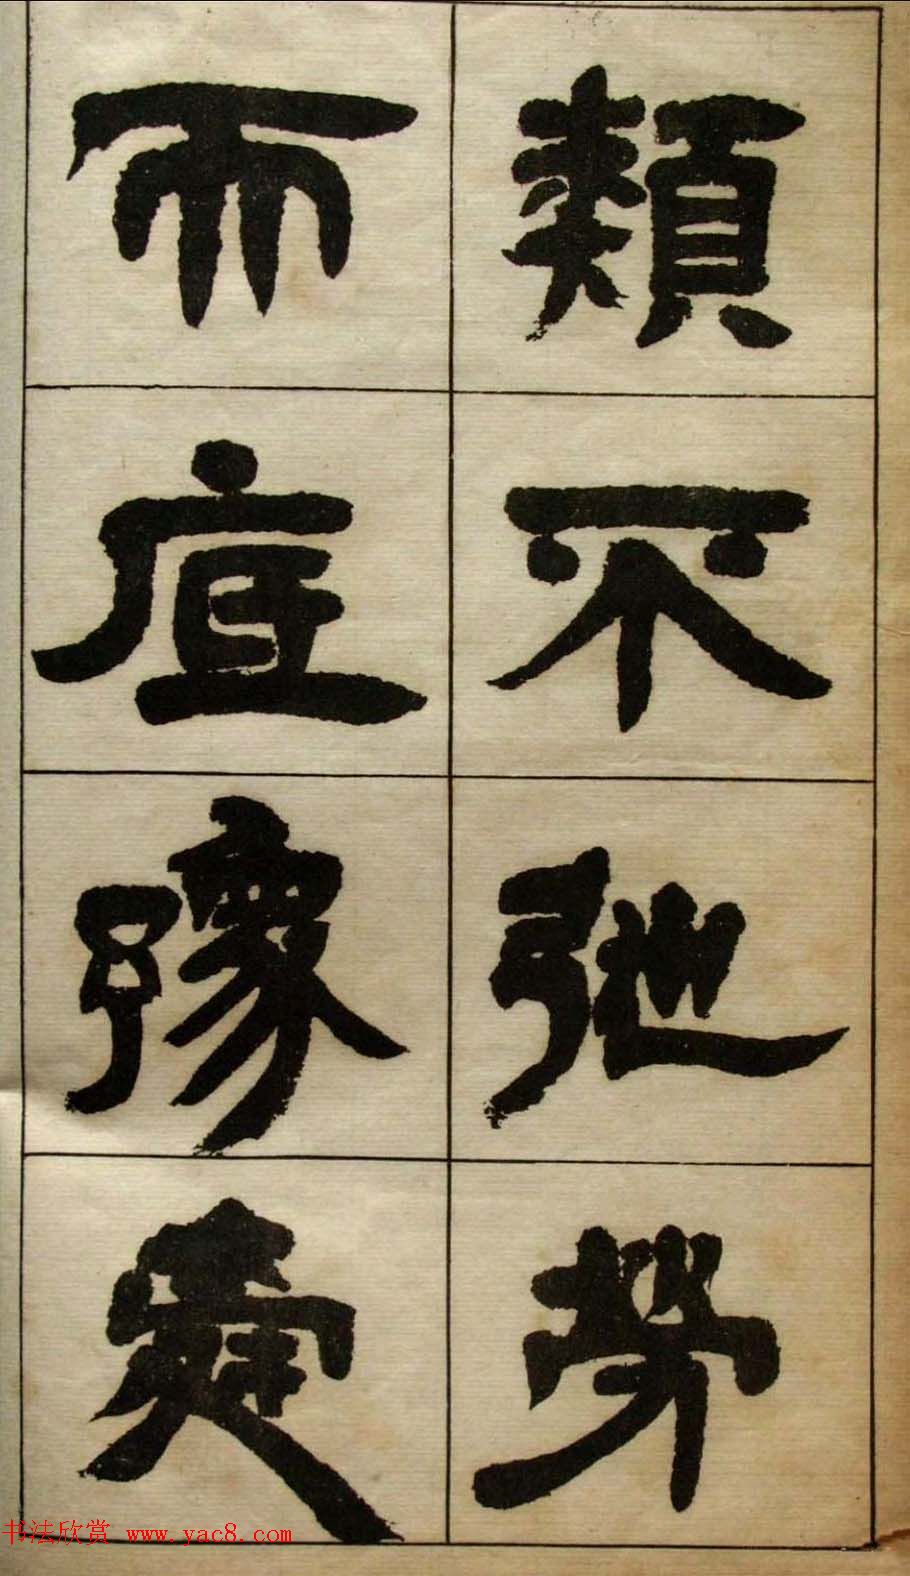 類不弛勞
而底豫舜
书法欣赏 www.yac8.com